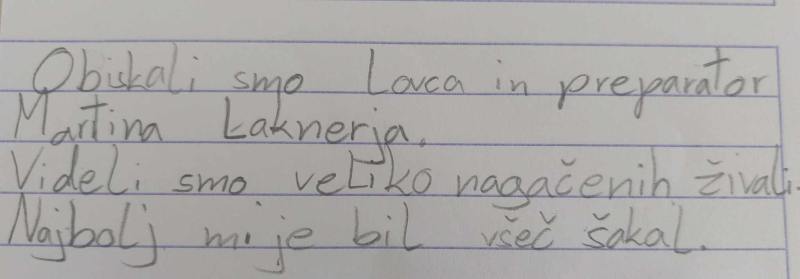 Obiskali smo Lovca in preparator
Martina Laknerja.
Videli smo veliko nagačenih živali.
Najbolj mi je bil všeč šakal.